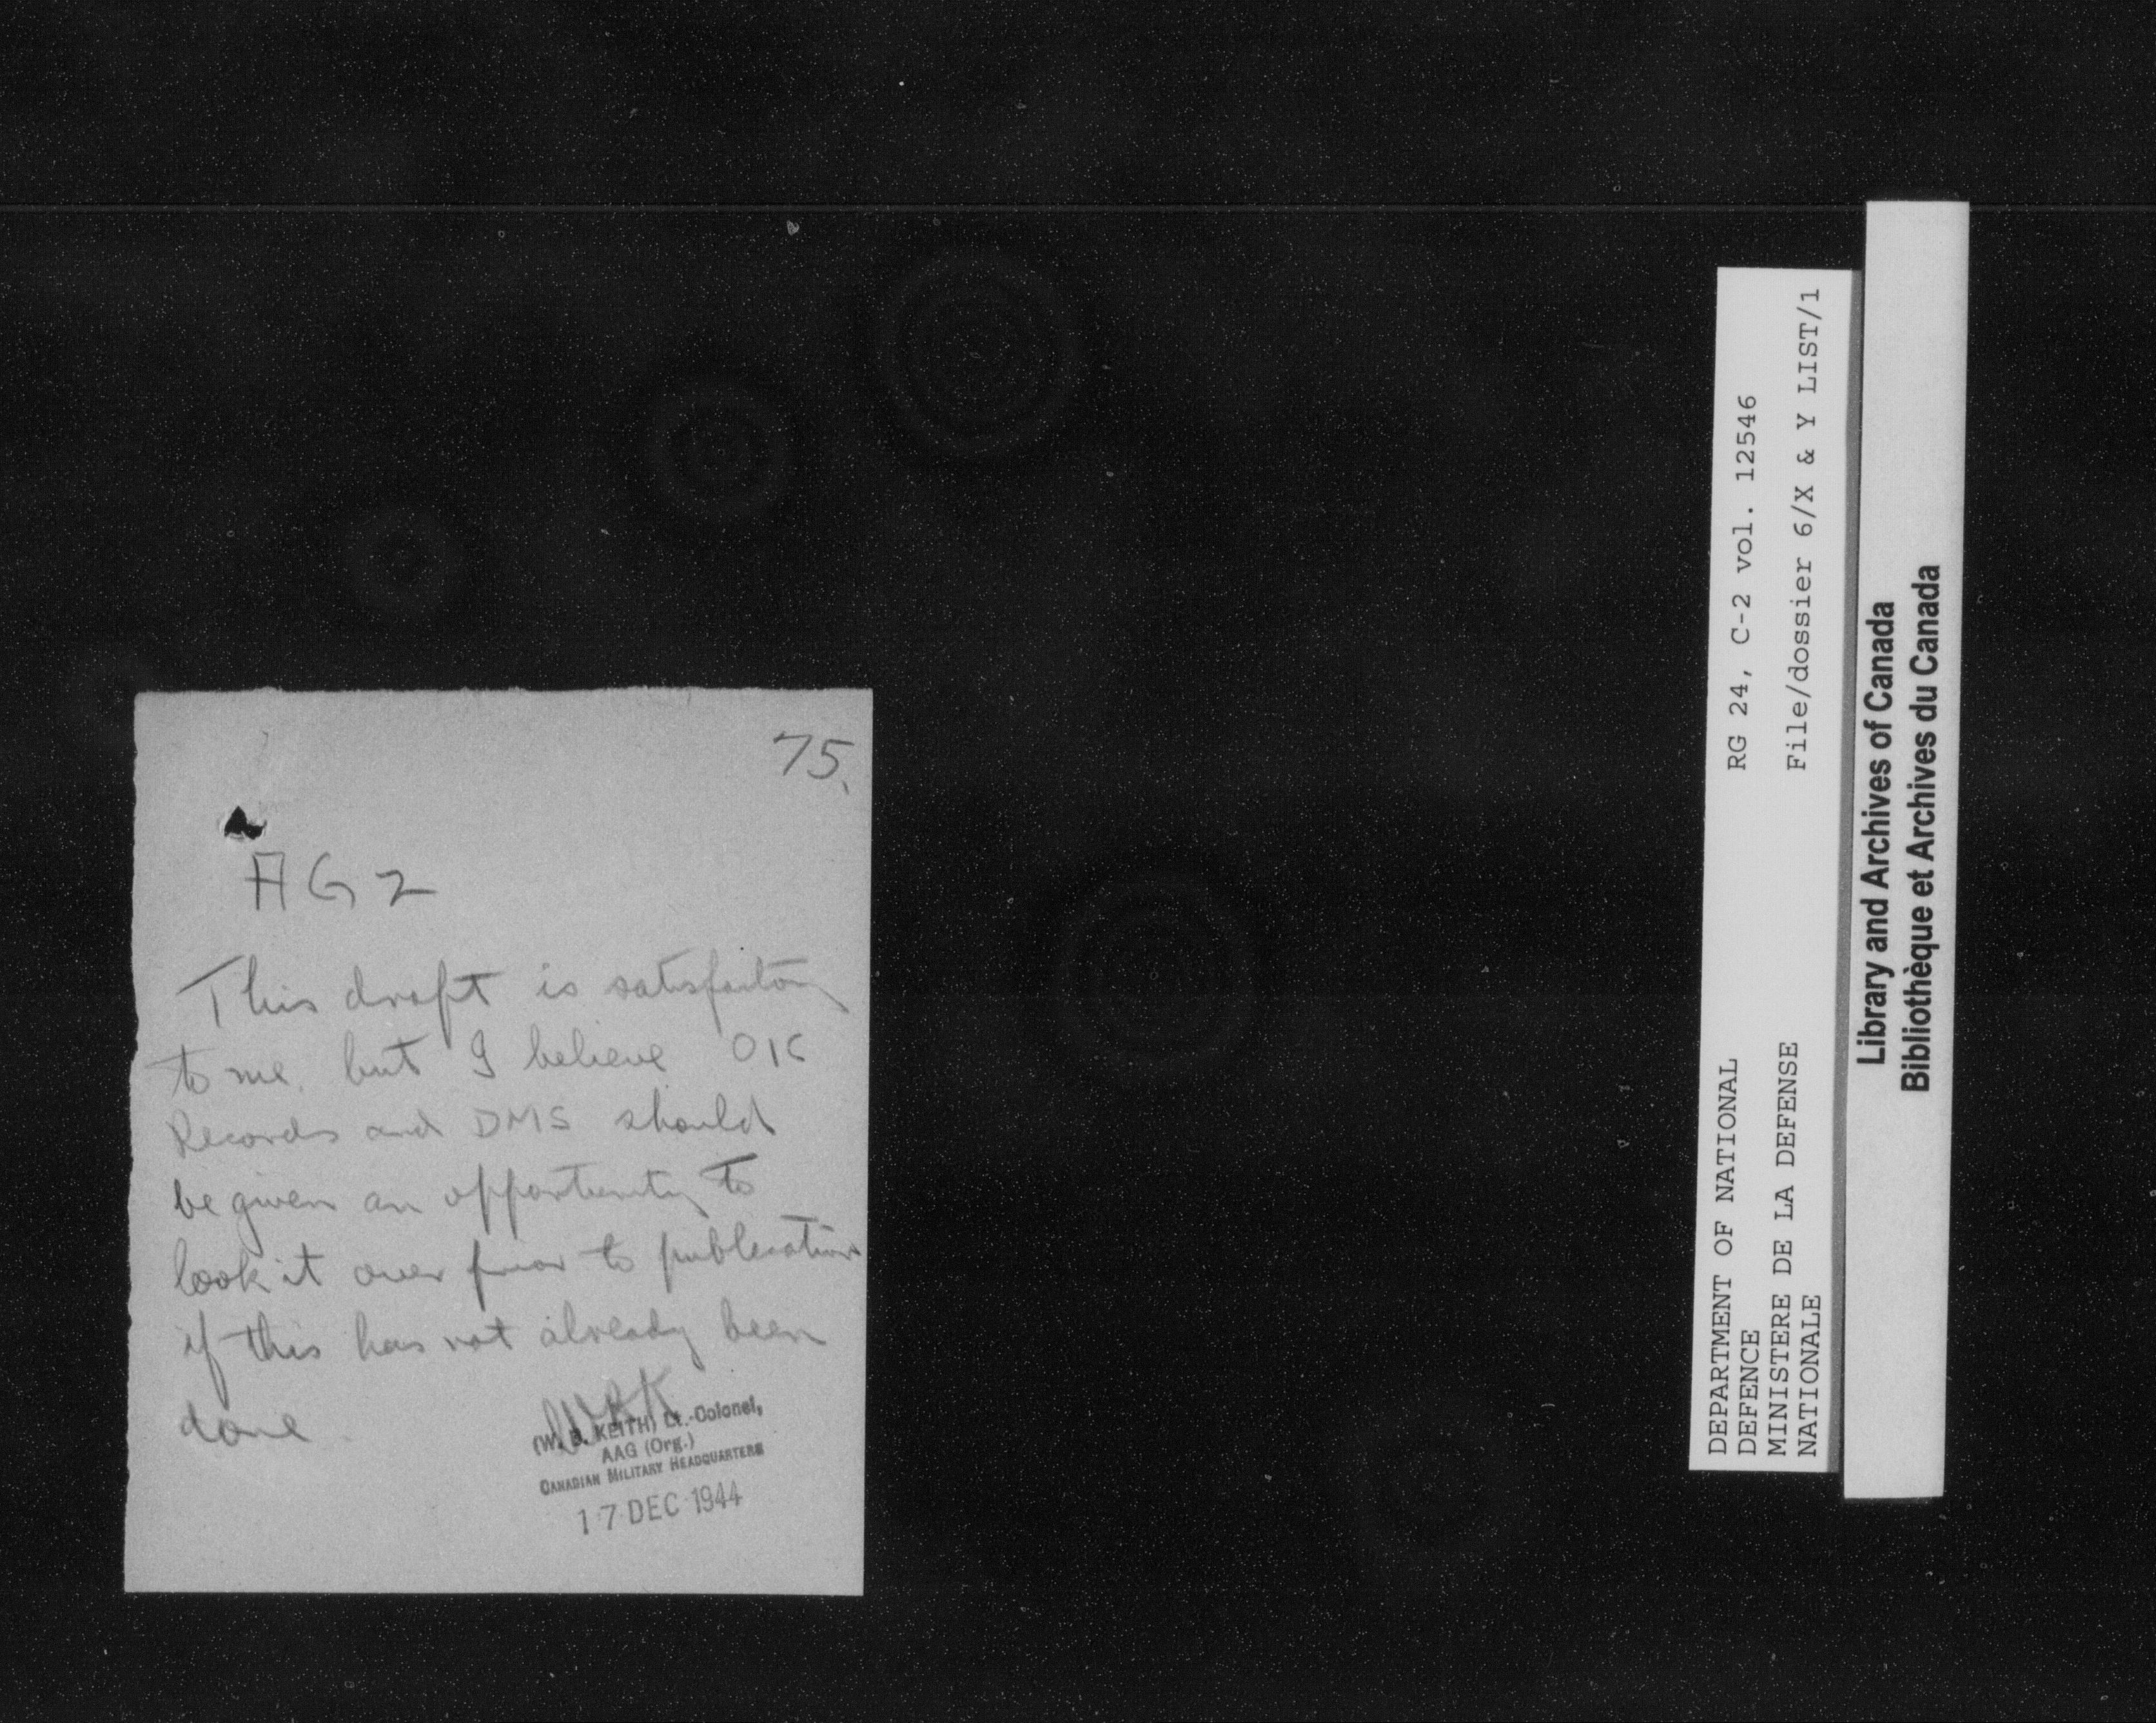 75.
AG 2
This draft is satisfactory
to me, but I believe OIC
Records and DMS should
be given an opportunity to
look it over prior to publication
if this has not already been
done.
WBK
(W. B. KEITH) Lt.-Colonel,
AAG (Org.)
CANADIAN MILITARY HEADQUARTERS
17 DEC 1944
DEPARTMENT OF NATIONAL
DEFENCE
MINISTERE DE LA DEFENSE
NATIONALE
RG 24, C-2 vol. 12546
File/dossier 6/X & Y LIST/1
Library and Archives of Canada
Bibliothèque et Archives du Canada